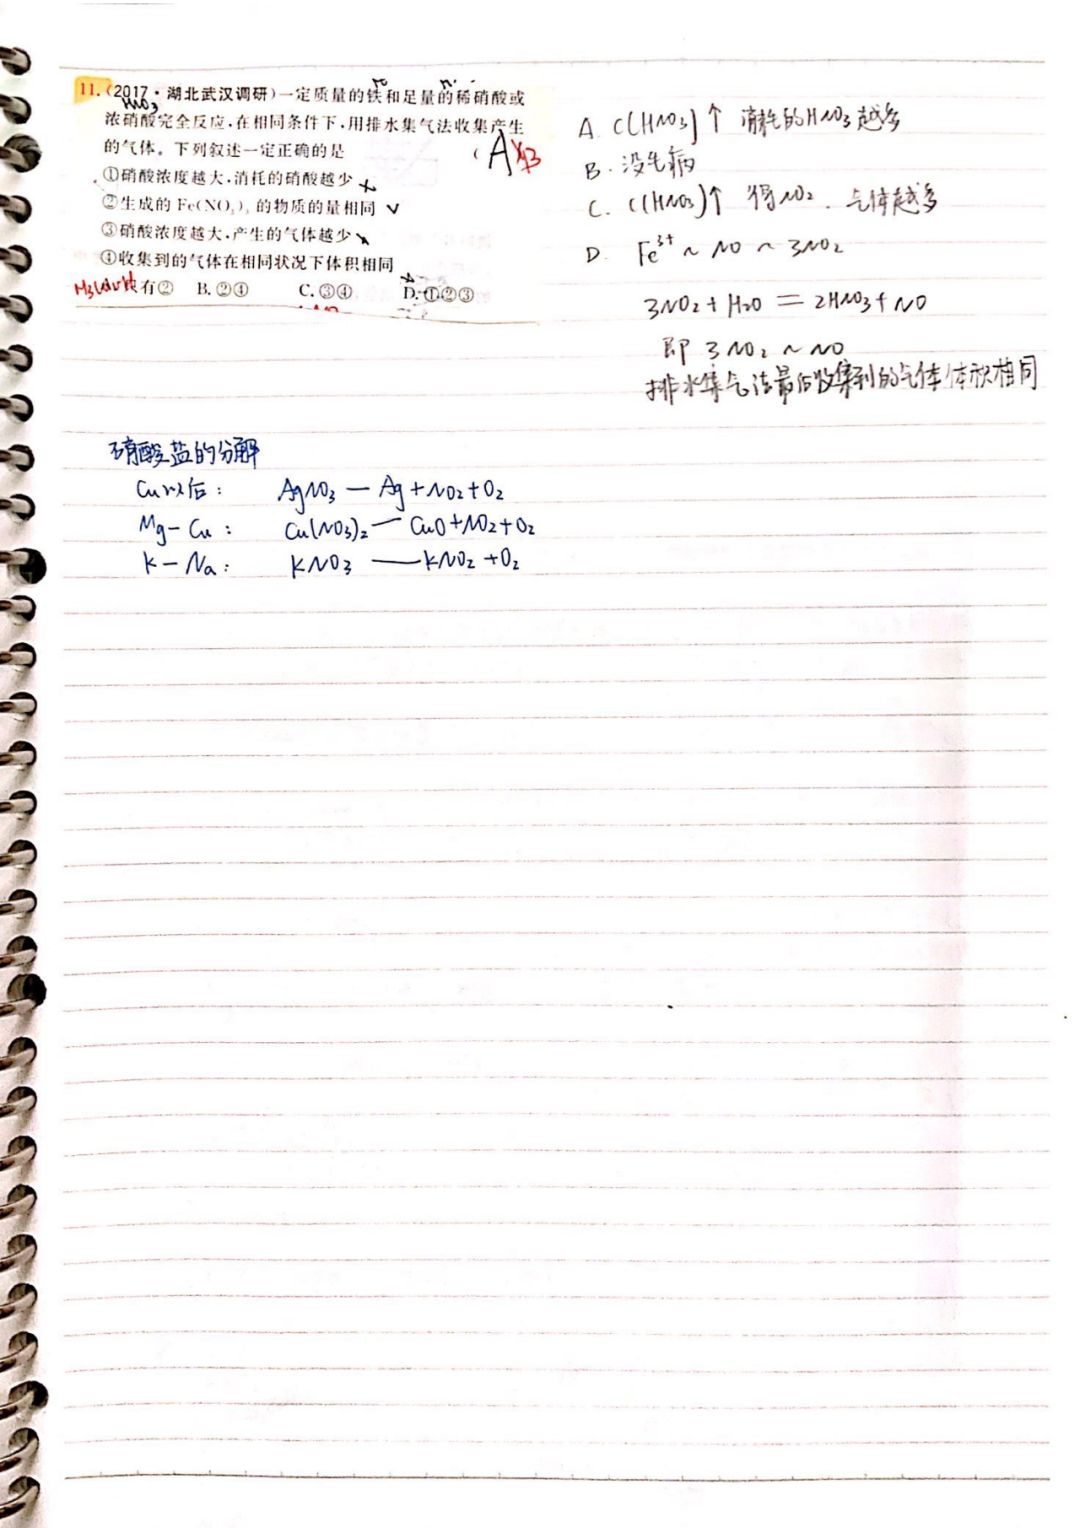 11.(2017·湖北武汉调研)一定质量的铁和足量的稀硝酸或
HNO3
浓硝酸完全反应,在相同条件下,用排水集气法收集产生
的气体。下列叙述一定正确的是 ( A B
①硝酸浓度越大,消耗的硝酸越少 ×
②生成的 Fe(NO3)3 的物质的量相同 √
③硝酸浓度越大,产生的气体越少 ×
④收集到的气体在相同状况下体积相同 ×
只有② B.②④ C.③④ D.①②③
A. C(HNO3)↑ 消耗的HNO3越多
B. 没毛病
C. C(HNO3)↑ 得NO2. 气体越多
D. Fe3+ ~ NO ~ 3NO2
3NO2 + H2O = 2HNO3 + NO
即 3NO2 ~ NO
排水集气法最后收集到的气体体积相同
硝酸盐的分解
Cu以后: AgNO3 — Ag+NO2+O2
Mg-Cu: Cu(NO3)2 — CuO+NO2+O2
K-Na: KNO3 — KNO2+O2